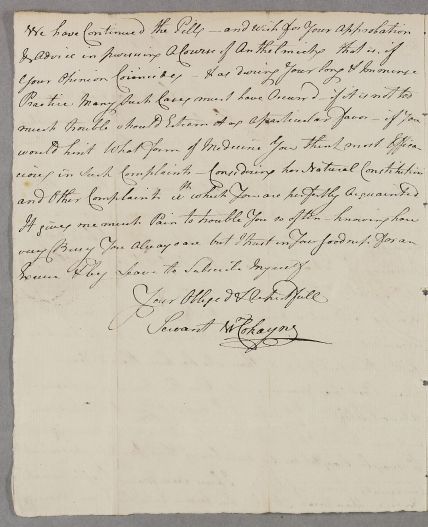 We have Continued the Pills – and wish for Your Approbation
& Advice in pursuing A Course of Anthelmintics that is, if
Your Opinion Coincides – & as during Your long & Immense
Practice Many Such Cases must have Occurd – if it is not too
much trouble should Esteem it as a particular Favor – if You
would hint What form of Medicine You think most Effica
cious in Such Complaints – Considering her Natural Constitution
and Other Complaints wth which You are perfectly Acquainted
It gives me much Pain to trouble You so often – knowing how
very Busy You Always are but I trust in Your Goodness for an
Excuse & beg Leave to Subscribe Myself
Your Obliged &
Servant W Cokayne